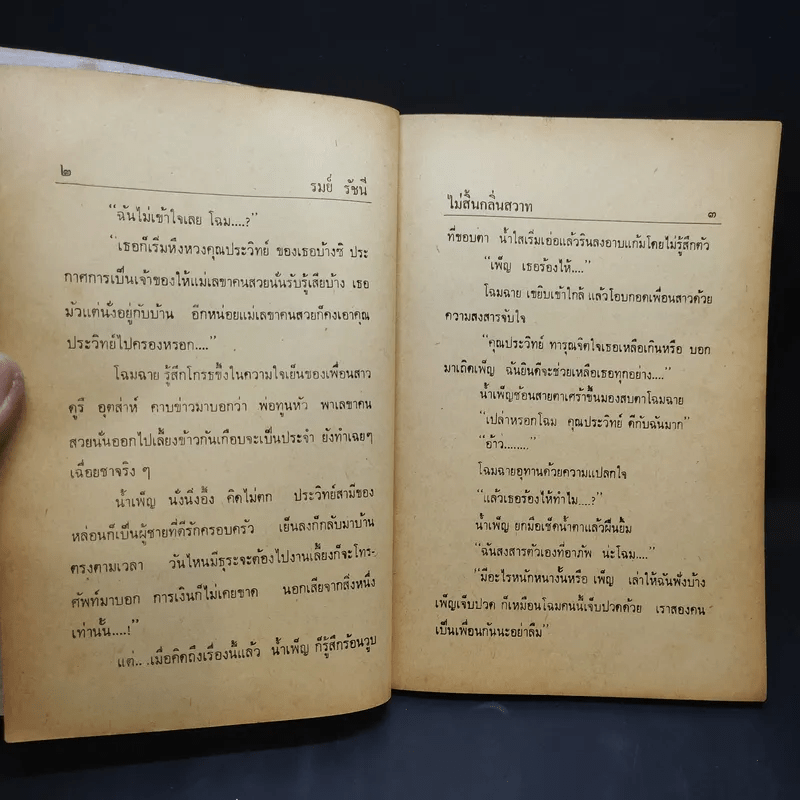 ๒
รมย์ รัชนี
"ฉันไม่เข้าใจเลย โฉม....?"
"เธอก็เริ่มหึงหวงคุณประวิทย์ ของเธอบ้างซิ ประ
กาศการเป็นเจ้าของให้แม่เลขาคนสวยนั่นรับรู้เสียบ้าง เธอ
มัวแต่นั่งอยู่กับบ้าน อีกหน่อยแม่เลขาคนสวยก็คงเอาคุณ
ประวิทย์ไปครองหรอก...."
โฉมฉาย รู้สึกโกรธขึ้งในความใจเย็นของเพื่อนสาว
ดูรึ อุตส่าห์ คาบข่าวมาบอกว่า พ่อทูนหัว พาเลขาคน
สวยนั่นออกไปเลี้ยงข้าวกันเกือบจะเป็นประจำ ยังทำเฉยๆ
เฉื่อยชาจริง ๆ
น้ำเพ็ญ นั่งนิ่งอึ้ง คิดไม่ตก ประวิทย์สามีของ
หล่อนก็เป็นผู้ชายที่ดีรักครอบครัว เย็นลงก็กลับมาบ้าน
ตรงตามเวลา วันไหนมีธุระจะต้องไปงานเลี้ยงก็จะโทร-
ศัพท์มาบอก การเงินก็ไม่เคยขาด นอกเสียจากสิ่งหนึ่ง
เท่านั้น....!
แต่... .เมื่อคิดถึงเรื่องนี้แล้ว น้ำเพ็ญ ก็รู้สึกร้อนวูบ
ไม่สิ้นกลิ่นสวาท
๓
ที่ขอบตา น้ำใสเริ่มเอ่อแล้วรินลงอาบแก้มโดยไม่รู้สึกตัว
"เพ็ญ เธอร้องไห้...."
โฉมฉาย เขยิบเข้าใกล้ แล้วโอบกอดเพื่อนสาวด้วย
ความสงสารจับใจ
"คุณประวิทย์ ทารุณจิตใจเธอเหลือเกินหรือ บอก
มาเถิดเพ็ญ ฉันยินดีจะช่วยเหลือเธอทุกอย่าง...."
น้ำเพ็ญช้อนสายตาเศร้าขึ้นมองสบตาโฉมฉาย
"เปล่าหรอกโฉม คุณประวิทย์ ดีกับฉันมาก"
"อ้าว........"
โฉมฉายอุทานด้วยความแปลกใจ
"แล้วเธอร้องไห้ทำไม....?"
น้ำเพ็ญ ยกมือเช็ดน้ำตาแล้วฝืนยิ้ม
"ฉันสงสารตัวเองที่อาภัพ น่ะโฉม...."
"มีอะไรหนักหนางั้นหรือ เพ็ญ เล่าให้ฉันฟังบ้าง
เพ็ญเจ็บปวด ก็เหมือนโฉมคนนี้เจ็บปวดด้วย เราสองคน
เป็นเพื่อนกันนะอย่าลืม"